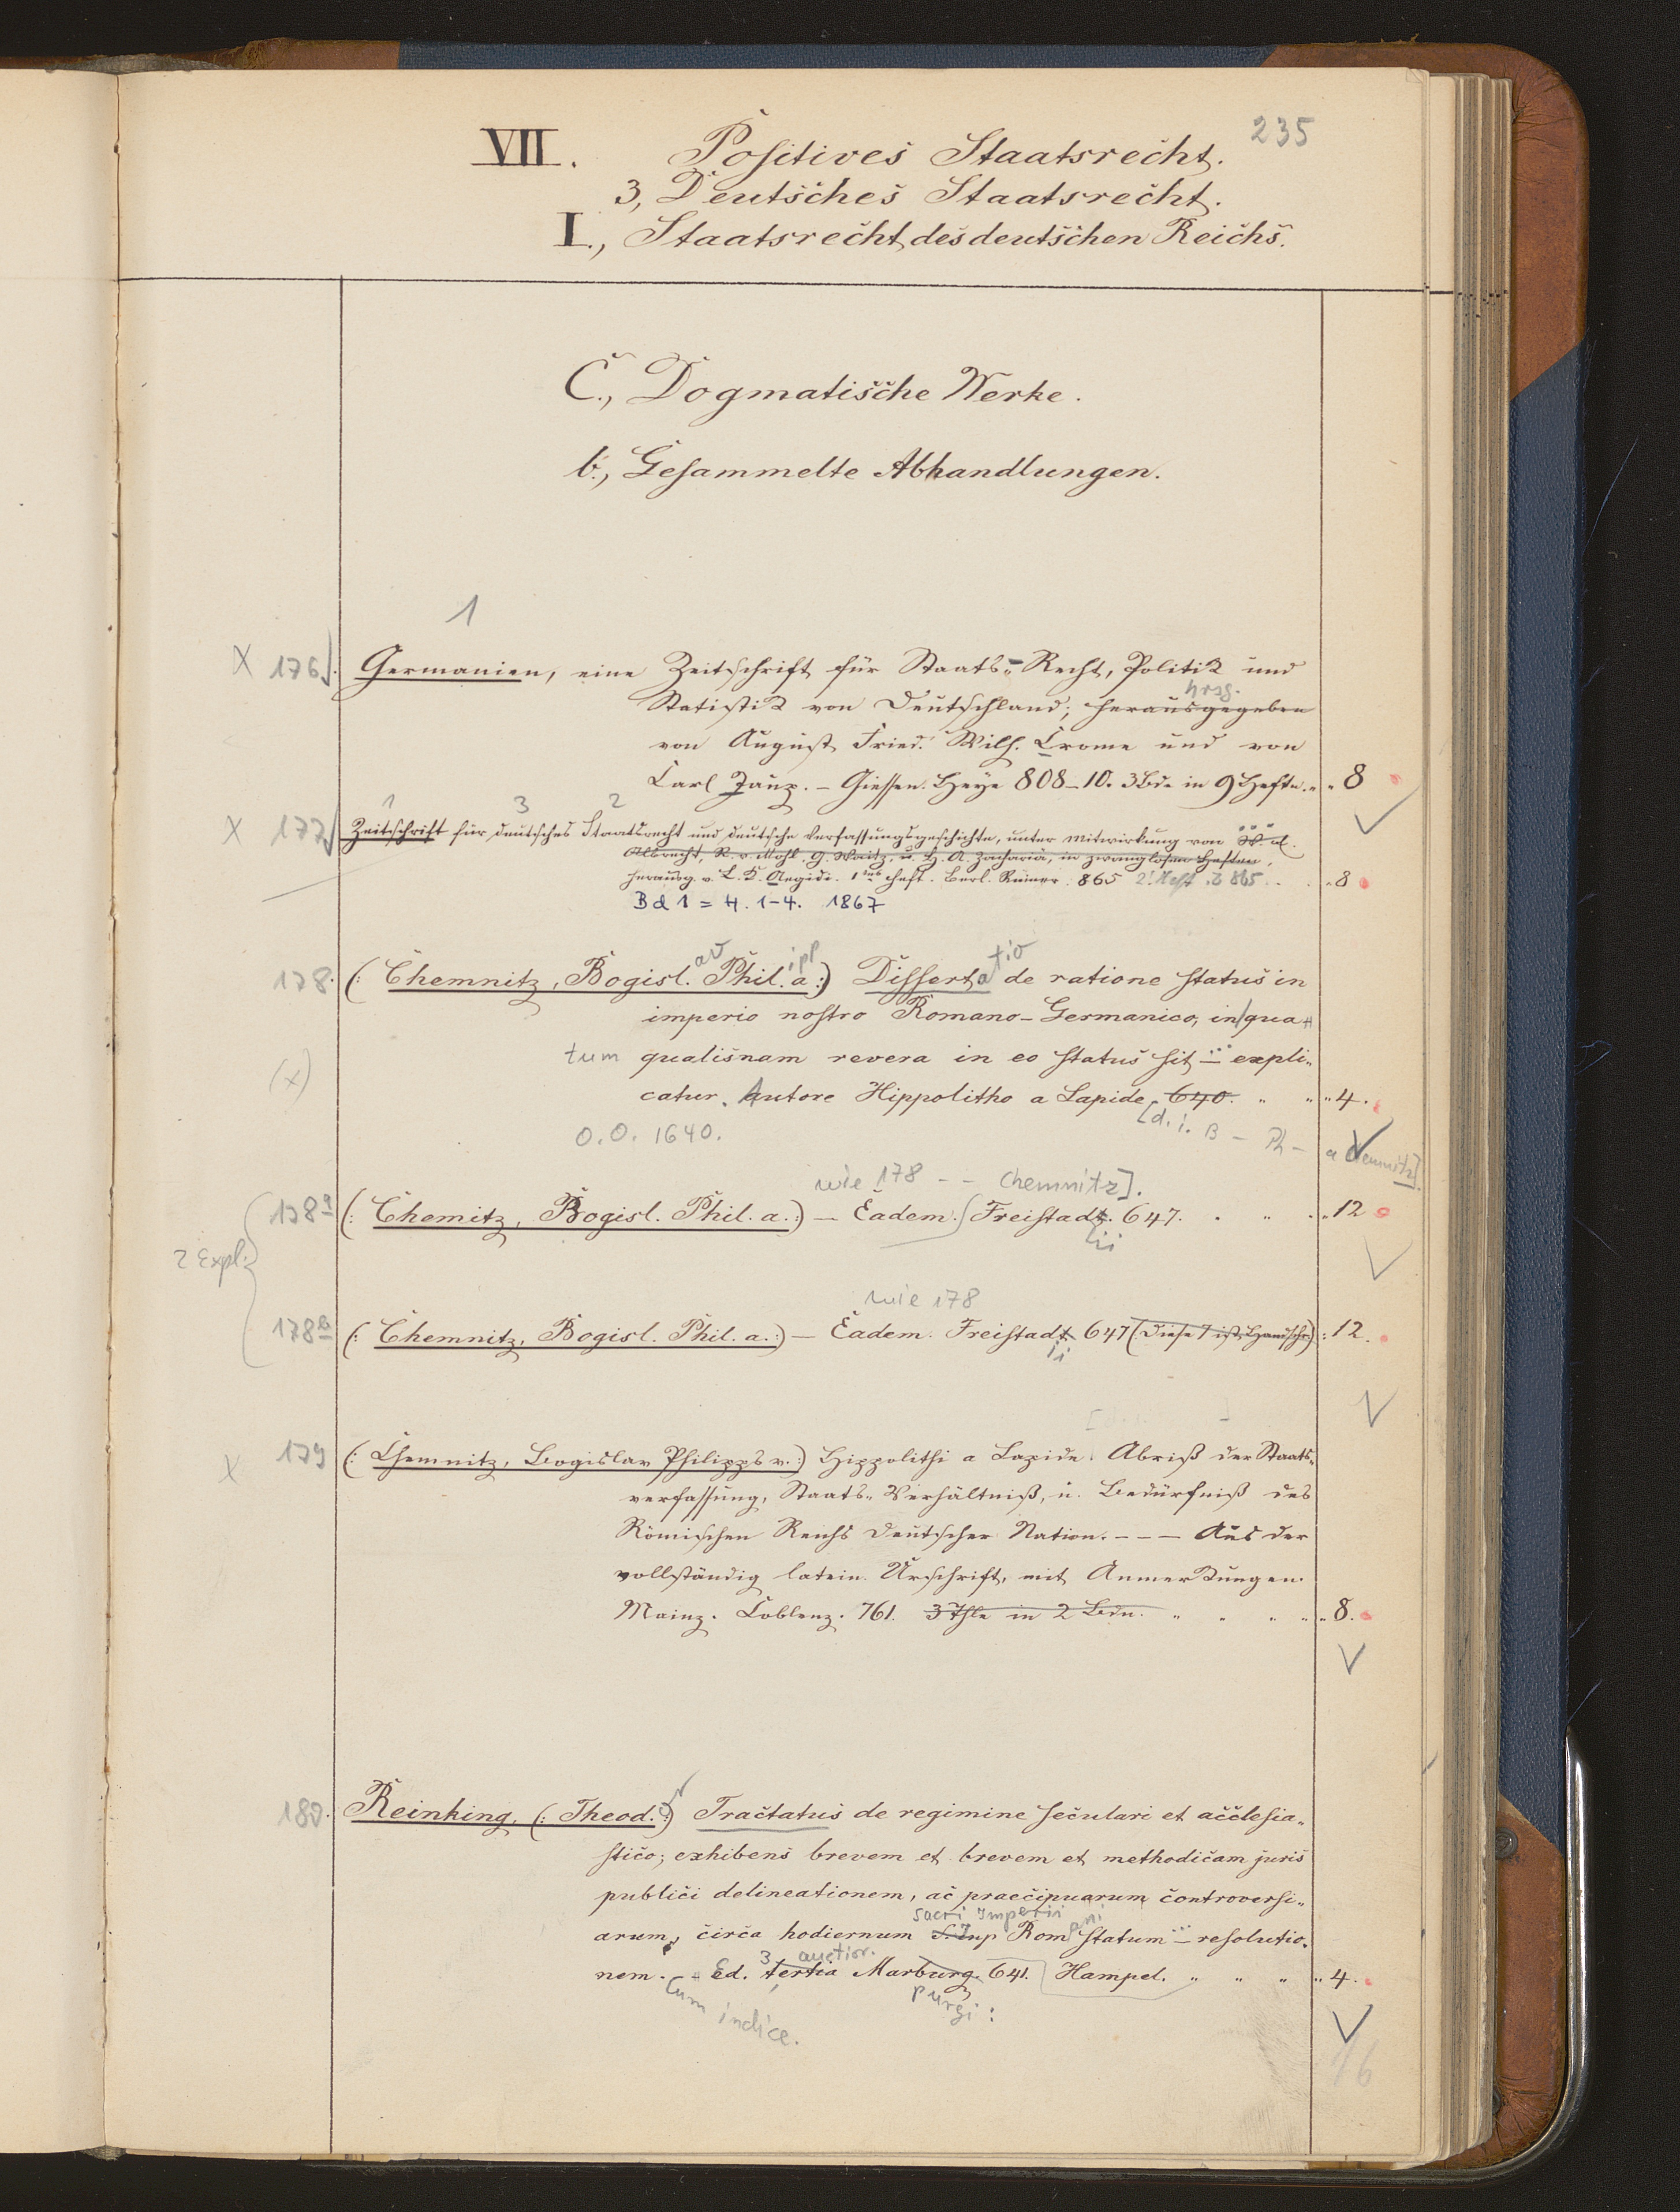 235
VII. Positives Staatsrecht.
3, Deutsches Staatsrecht.
I., Staatsrecht des deutschen Reichs.
C., Dogmatische Werke.
b., Gesammelte Abhandlungen.
1
X 176. Germanien, eine Zeitschrift für Staats-Recht, Politik und
hrsg.
Statistik von Deutschland; herausgegeben
von August Fried. Wilh. Crome und von
Carl Jaup. – Giessen. Heye 808–10. 3 Bde in 9 Hefte. " 8
1 3 2
X 177 Zeitschrift für deutsches Staatsrecht und deutsche Verfassungsgeschichte, unter Mitwirkung von W. Al.
Albrecht, R. v. Mohl. G. Waitz, u. H. A. Zachariä, in zwanglosen Heften,
herausg. v. L. K. Aegidi. 1tes Heft. Berl. Reimer. 865 2. Heft 865 . . " 8
Bd 1 = H. 1–4. 1867
av ipl tio
178. (: Chemnitz, Bogisl. Phil. a :) Disserta de ratione status in
imperio nostro Romano-Germanico, in qua
tum qualisnam revera in eo status sit … expli-
(x)
catur. Autore Hippolitho a Lapide 640. " " " 4.
O. O. 1640. [d. i. B – Ph – a Chemnitz].
wie 178 - - Chemnitz].
178a (: Chemitz, Bogisl. Phil. a. :) – Eadem. Freistadt. 647. . " . " 12
ii
2 Expl.
wie 178
178b (: Chemnitz, Bogisl. Phil. a. :) – Eadem. Freistadt 647 (diese ist Handschr.) : 12.
ii
X 179 (: Chemnitz, Bogislav Philipps v. :) Hippolithi a Lapide Abriß der Staats-
verfassung, Staats-Verhältniß, u. Bedürfniß des
Römischen Reichs Deutscher Nation. – – – Aus der
vollständig latein. Urschrift, mit Anmerkungen.
Mainz. Coblenz. 761. 3 Thle in 2 Bdn. " " " " 8.
180. Reinking, (: Theod. :) Tractatus de regimine seculari et acclesia-
stico; exhibens brevem et brevem et methodicam juris
publici delineationem, ac praecipuarum controversi-
sacri Imperii ani
arum, circa hodiernum S. Imp Rom statum … resolutio-
3, auctior.
nem. Ed. tertia Marburg. 641. Hampel. " " " " 4.
Cum indice. purgi:
16